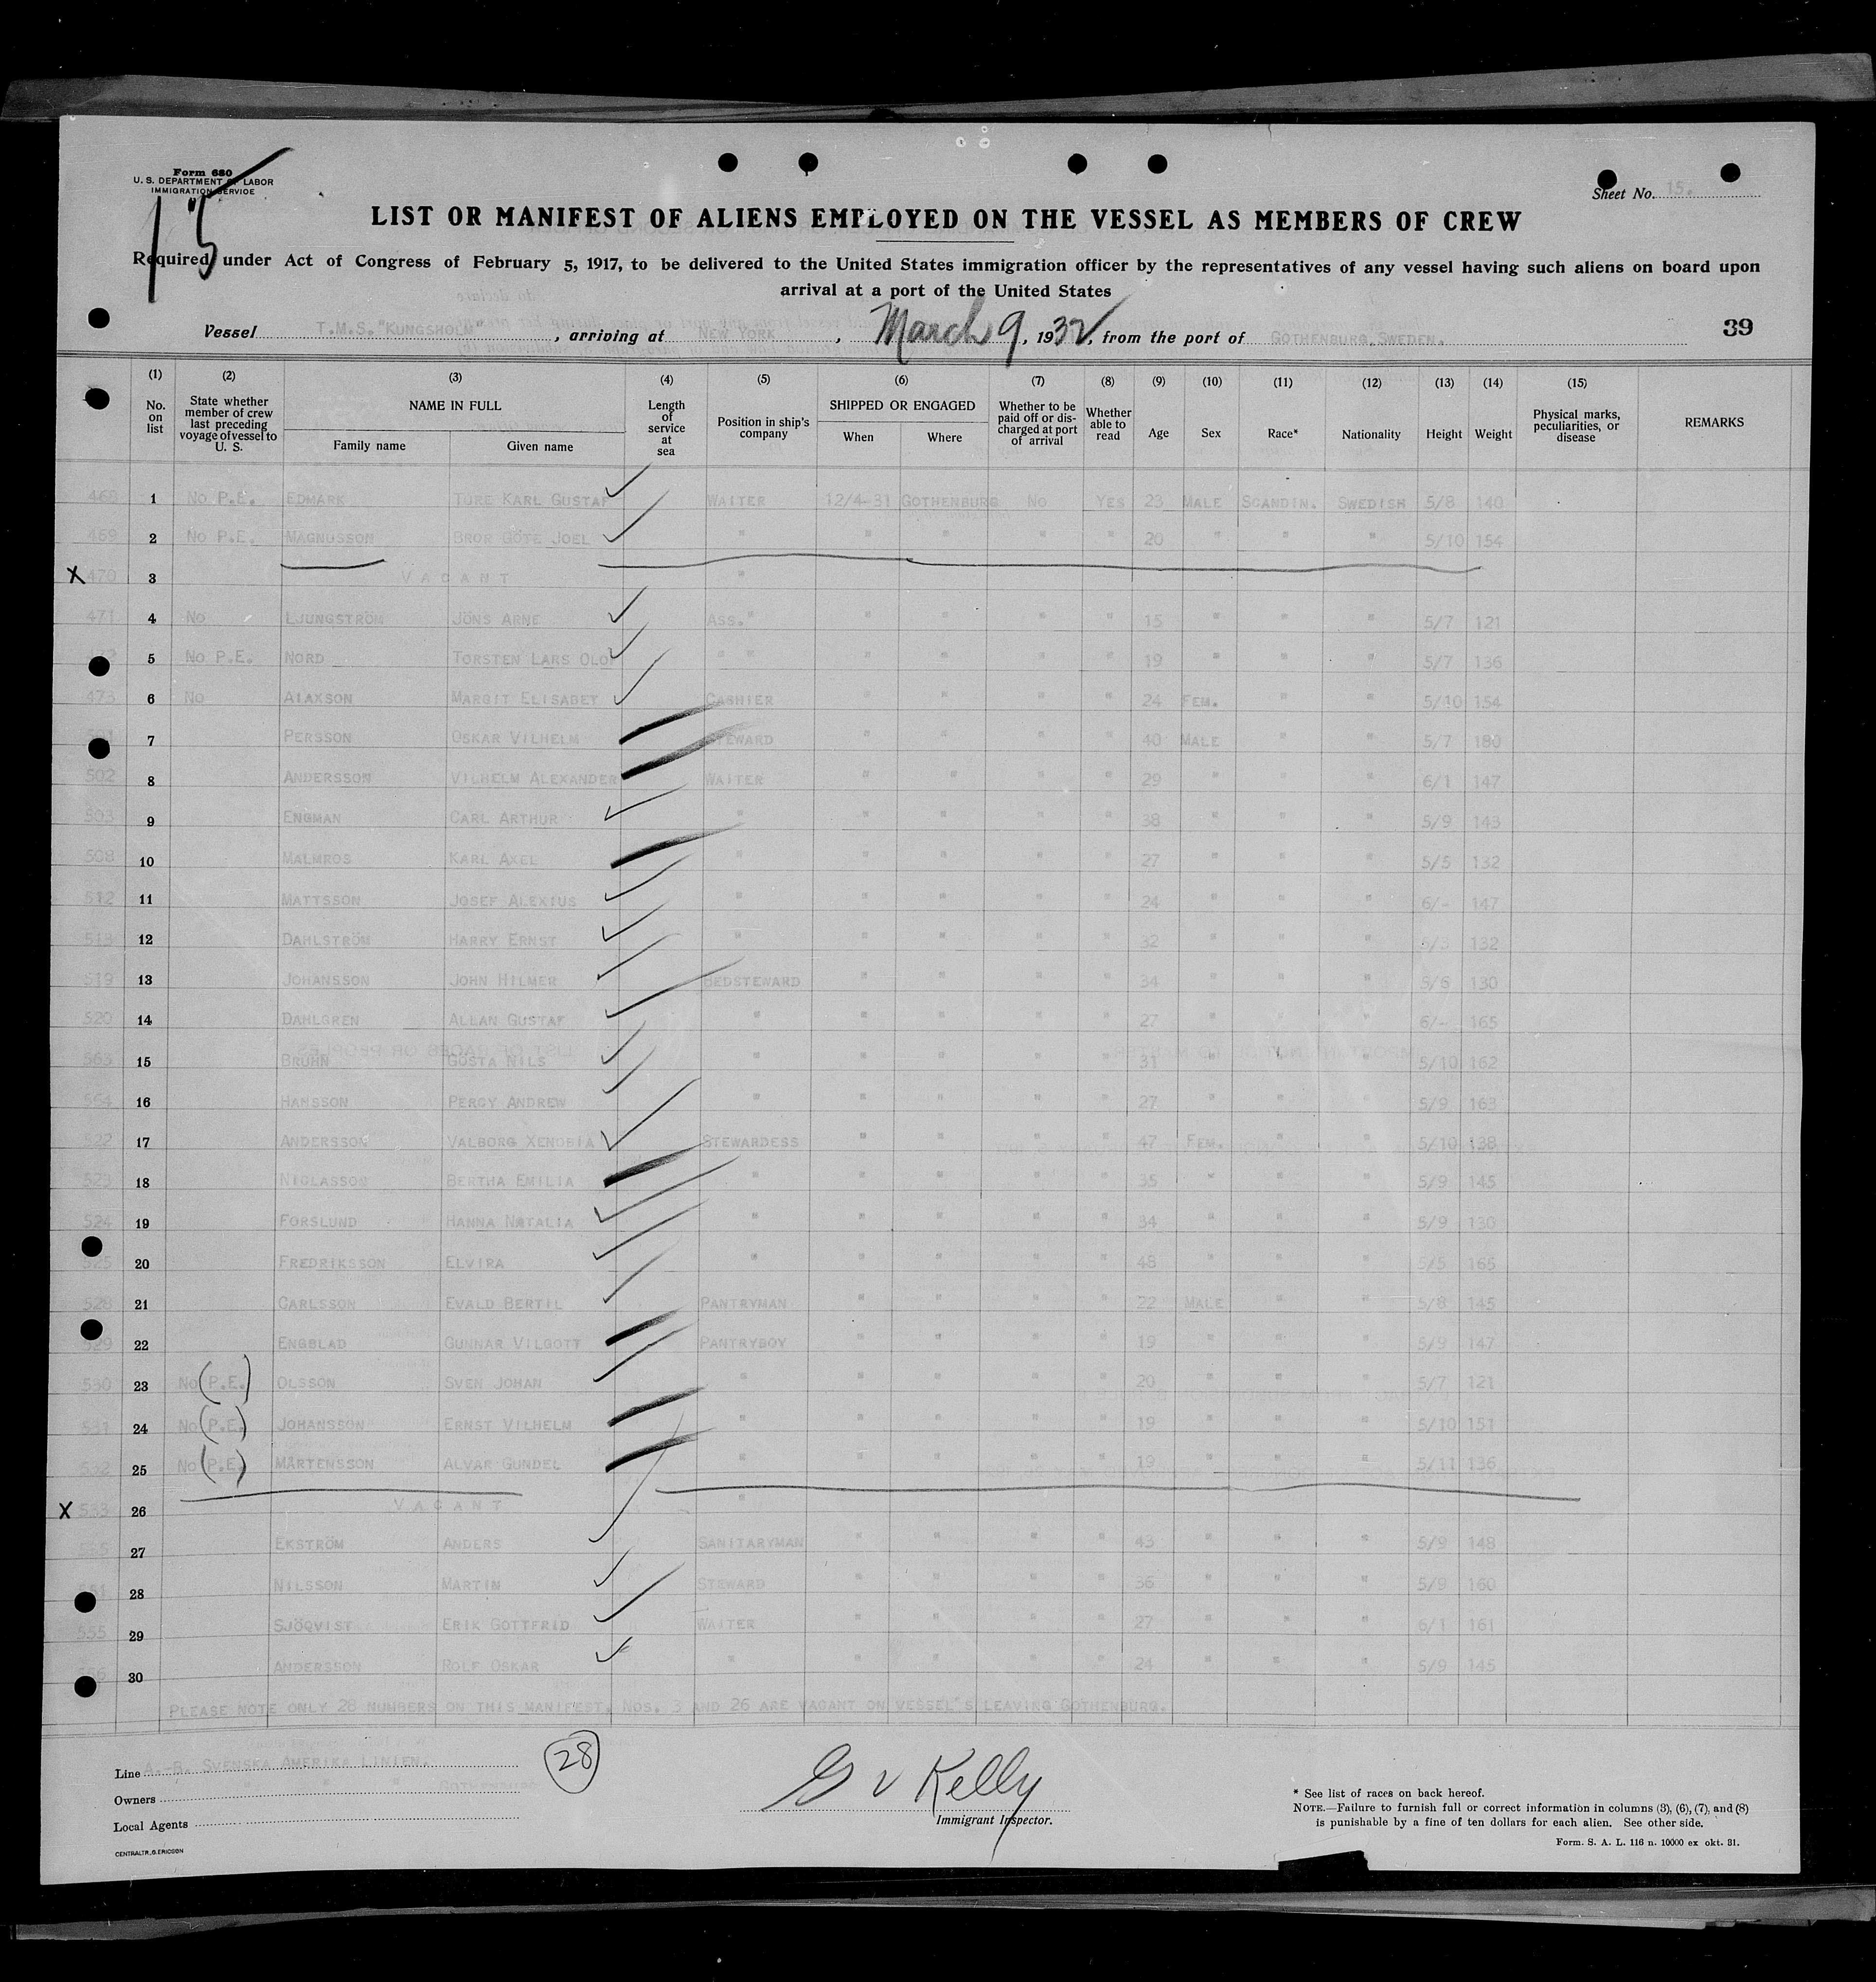 Form 680
U. S. DEPARTMENT OF LABOR
IMMIGRATION SERVICE
15
Sheet No. 15.
LIST OR MANIFEST OF ALIENS EMPLOYED ON THE VESSEL AS MEMBERS OF CREW
Required under Act of Congress of February 5, 1917, to be delivered to the United States immigration officer by the representatives of any vessel having such aliens on board upon
arrival at a port of the United States
Vessel T.M.S. "KUNGSHOLM", arriving at NEW YORK, March 9, 1932, from the port of GOTHENBURG, SWEDEN.
39
(1) (2) (3) (4) (5) (6) (7) (8) (9) (10) (11) (12) (13) (14) (15)
No. on list
State whether member of crew last preceding voyage of vessel to U. S.
NAME IN FULL
Family name Given name
Length of service at sea
Position in ship's company
SHIPPED OR ENGAGED
When Where
Whether to be paid off or discharged at port of arrival
Whether able to read
Age Sex Race* Nationality Height Weight
Physical marks, peculiarities, or disease
REMARKS
468 1 NO P.E. EDMARK TURE KARL GUSTAF WAITER 12/4-31 GOTHENBURG NO YES 23 MALE SCANDIN. SWEDISH 5/8 140
469 2 NO P.E. MAGNUSSON BROR GÖTE JOEL " " " " " 20 " " " 5/10 154
X 470 3 VACANT "
471 4 NO LJUNGSTRÖM JÖNS ARNE ASS. " " " " " 15 " " " 5/7 121
5 NO P.E. NORD TORSTEN LARS OLOF " " " " " " 19 " " " 5/7 136
473 6 NO ALAXSON MARGIT ELISABET CASHIER " " " " 24 FEM. " " 5/10 154
7 PERSSON OSKAR VILHELM STEWARD " " " " 40 MALE " " 5/7 180
502 8 ANDERSSON VILHELM ALEXANDER WAITER " " " " 29 " " " 6/1 147
503 9 ENGMAN CARL ARTHUR " " " " " 38 " " " 5/9 143
508 10 MALMROS KARL AXEL " " " " " 27 " " " 5/5 132
512 11 MATTSSON JOSEF ALEXIUS " " " " " 24 " " " 6/- 147
513 12 DAHLSTRÖM HARRY ERNST " " " " " 32 " " " 5/3 132
519 13 JOHANSSON JOHN HILMER BEDSTEWARD " " " " 34 " " " 5/6 130
520 14 DAHLGREN ALLAN GUSTAF " " " " " 27 " " " 6/- 165
563 15 BRUHN GÖSTA NILS " " " " " 31 " " " 5/10 162
564 16 HANSSON PERCY ANDREW " " " " " 27 " " " 5/9 163
522 17 ANDERSSON VALBORG XENOBIA STEWARDESS " " " " 47 FEM. " " 5/10 138
523 18 NICLASSON BERTHA EMILIA " " " " " 35 " " " 5/9 145
524 19 FORSLUND HANNA NATALIA " " " " " 34 " " " 5/9 130
525 20 FREDRIKSSON ELVIRA " " " " " 48 " " " 5/5 166
528 21 CARLSSON EVALD BERTIL PANTRYMAN " " " " 22 MALE " " 5/8 145
529 22 ENGBLAD GUNNAR VILGOTT PANTRYBOY " " " " 19 " " " 5/9 147
530 23 NO (P.E.) OLSSON SVEN JOHAN " " " " " 20 " " " 5/7 121
531 24 NO (P.E.) JOHANSSON ERNST VILHELM " " " " " 19 " " " 5/10 151
532 25 NO (P.E.) MÅRTENSSON ALVAR GUNDEL " " " " " 19 " " " 5/11 136
X 533 26 VACANT "
27 EKSTRÖM ANDERS SANITARYMAN " " " " 43 " " " 5/9 148
28 NILSSON MARTIN STEWARD " " " " 36 " " " 5/9 160
555 29 SJÖQVIST ERIK GOTTFRID WAITER " " " " 27 " " " 6/1 161
30 ANDERSSON ROLF OSKAR " " " " " 24 " " " 5/9 145
PLEASE NOTE ONLY 28 NUMBERS ON THIS MANIFEST. NOS. 3 AND 26 ARE VACANT ON VESSEL'S LEAVING GOTHENBURG.
Line A.-B. SVENSKA AMERIKA LINIEN.
28
Owners " " " GOTHENBURG
Local Agents
CENTRALTR., G. ERICSON
G V Kelly
Immigrant Inspector.
* See list of races on back hereof.
NOTE.—Failure to furnish full or correct information in columns (3), (6), (7), and (8)
is punishable by a fine of ten dollars for each alien. See other side.
Form. S. A. L. 116 n. 10000 ex okt. 31.